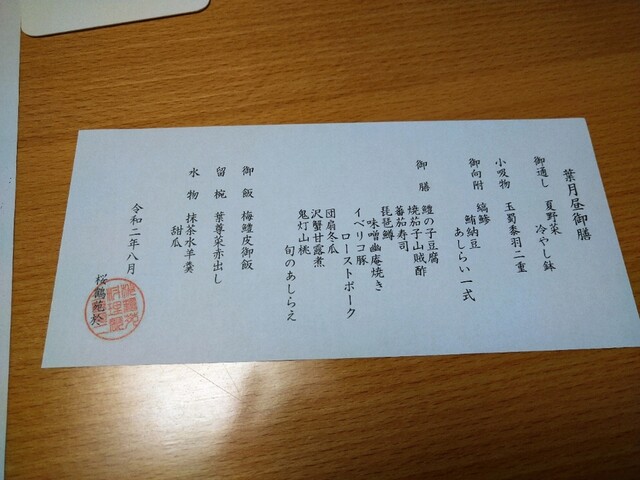 葉月昼御膳
御通し 夏野菜 冷やし鉢
小吸物 玉蜀黍羽二重
御向附 縞鯵
鮪納豆
あしらい一式
御膳 鱧の子豆腐
焼茄子山賊酢
蕃茄寿司
琵琶鱒
味噌幽庵焼き
イベリコ豚
ローストポーク
団扇冬瓜
沢蟹甘露煮
鬼灯山桃
旬のあしらえ
御飯 梅鱧皮御飯
留椀 葉尊菜赤出し
水物 抹茶水羊羹
甜瓜
令和二年八月
桜鶴苑於